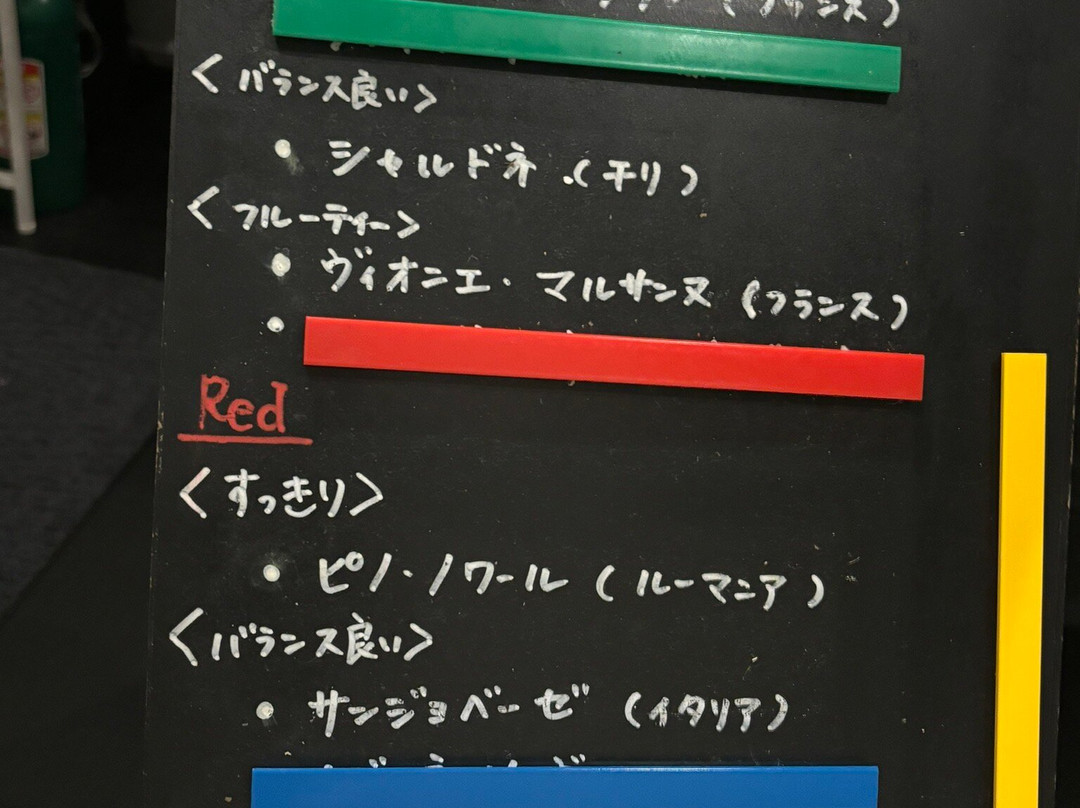 (フランス)
<バランス良い>
• シャルドネ.(チリ)
<フルーティー>
• ヴィオニエ・マルサンヌ (フランス)
•
Red
<すっきり>
• ピノ・ノワール (ルーマニア)
<バランス良い>
• サンジョベーゼ (イタリア)